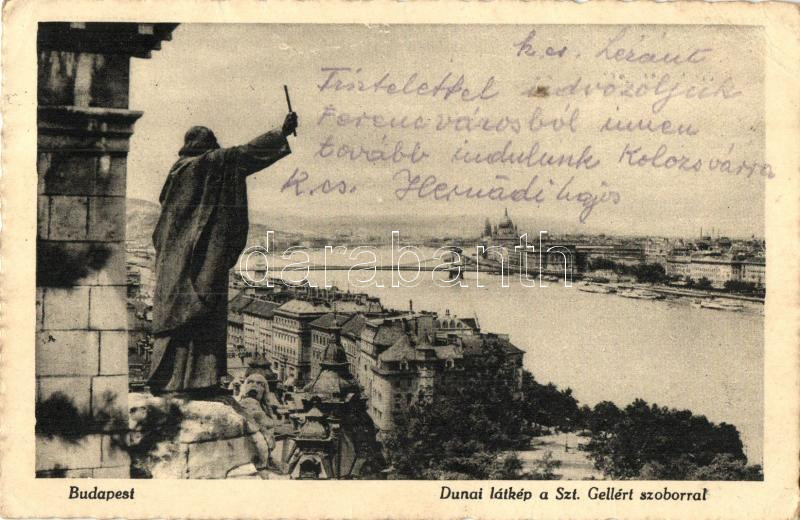 k.cs. Lóránt
Tisztelettel üdvözöljük
Ferencvárosból innen
tovább indulunk Kolozsvárra
k.cs. Hernádi hajós
darabanth.com
Budapest
Dunai látkép a Szt. Gellért szoborral